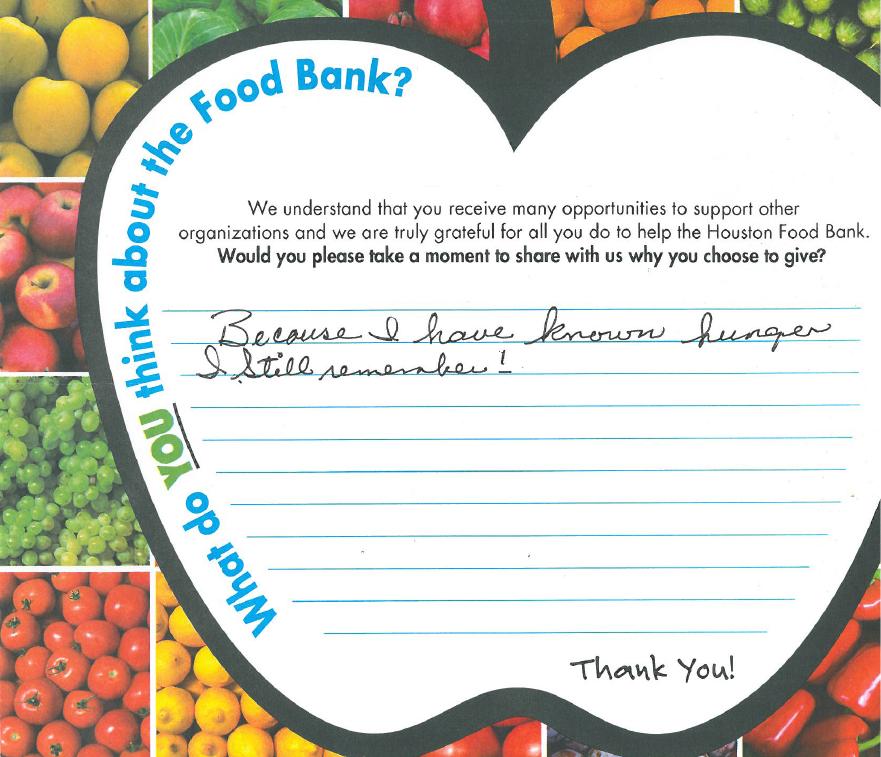 What do YOU think about the Food Bank?
We understand that you receive many opportunities to support other
organizations and we are truly grateful for all you do to help the Houston Food Bank.
Would you please take a moment to share with us why you choose to give?
Because I have known hunger
I still remember!
Thank You!